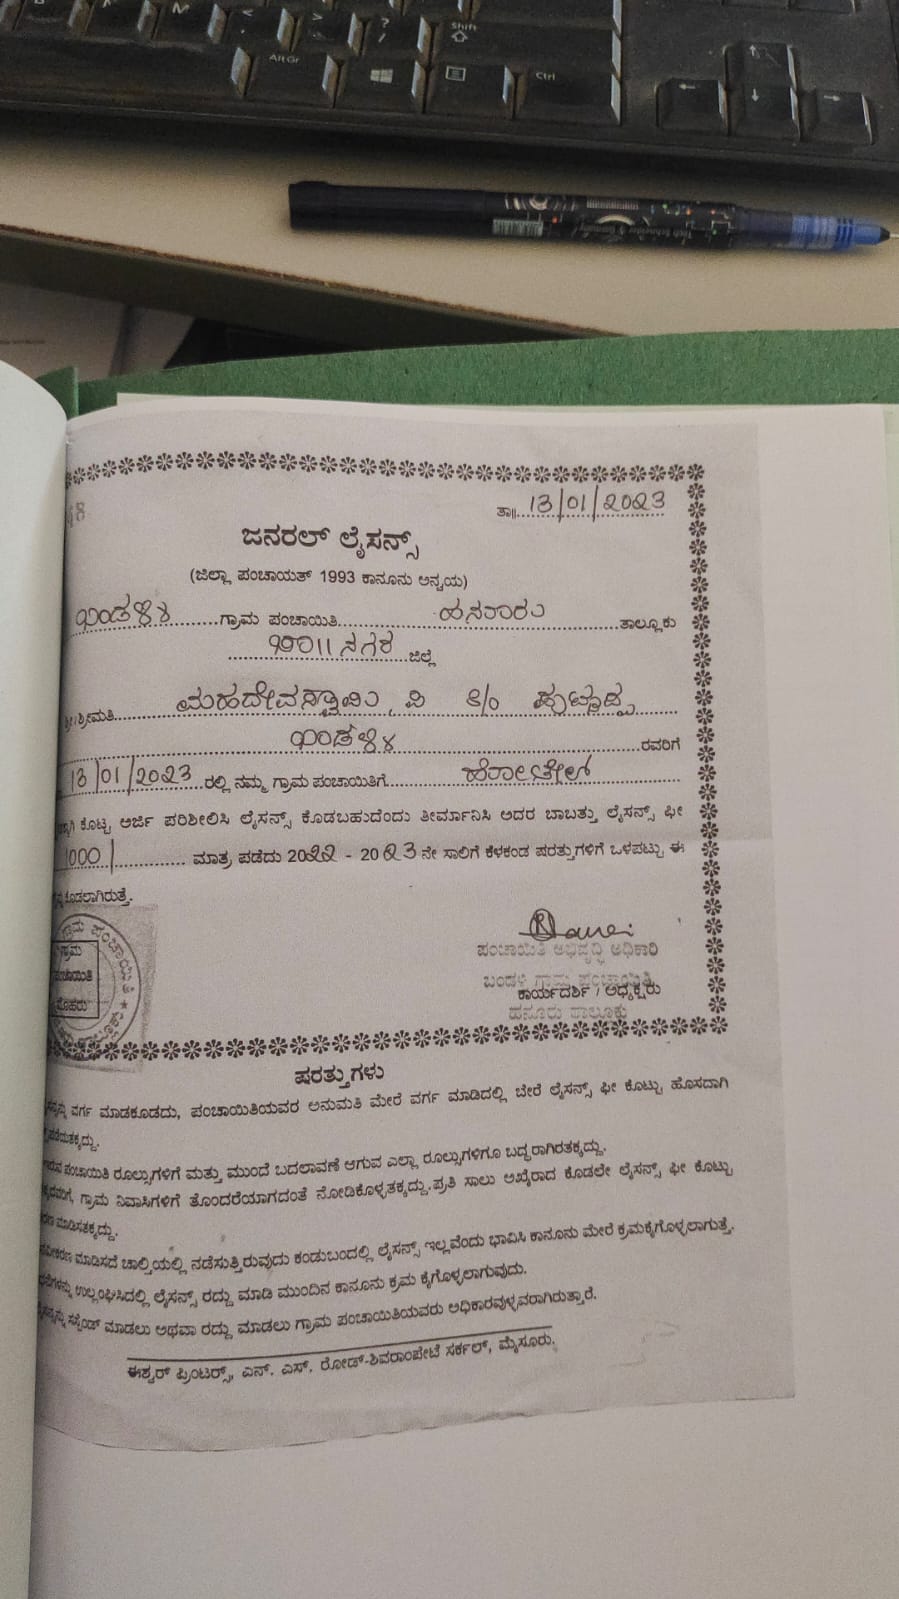 Shift
AltGr
Ctrl
ತಾ॥ 13/01/2023
ಜನರಲ್ ಲೈಸನ್ಸ್
(ಜಿಲ್ಲಾ ಪಂಚಾಯತ್ 1993 ಕಾನೂನು ಅನ್ವಯ)
ಬಂಡಳ್ಳಿ ಗ್ರಾಮ ಪಂಚಾಯಿತಿ ಹನೂರು ತಾಲ್ಲೂಕು
ಚಾ॥ನಗರ ಜಿಲ್ಲೆ
ಶ್ರೀ/ಶ್ರೀಮತಿ ಮಹದೇವಸ್ವಾಮಿ, ಪಿ S/o ಪುಟ್ಟಾಡಪ್ಪ
ಬಂಡಳ್ಳಿ ರವರಿಗೆ
13/01/2023 ರಲ್ಲಿ ನಮ್ಮ ಗ್ರಾಮ ಪಂಚಾಯಿತಿಗೆ ಹೋಟೇಲ್
ಕೊಟ್ಟ ಅರ್ಜಿ ಪರಿಶೀಲಿಸಿ ಲೈಸನ್ಸ್ ಕೊಡಬಹುದೆಂದು ತೀರ್ಮಾನಿಸಿ ಅದರ ಬಾಬತ್ತು ಲೈಸನ್ಸ್ ಫೀ
1000/ ಮಾತ್ರ ಪಡೆದು 2022 - 2023 ನೇ ಸಾಲಿಗೆ ಕೆಳಕಂಡ ಷರತ್ತುಗಳಿಗೆ ಒಳಪಟ್ಟು ಈ
ಕೊಡಲಾಗಿರುತ್ತೆ.
ಗ್ರಾಮ ಪಂಚಾಯಿತಿ
ಪಂಚಾಯಿತಿ ಅಭಿವೃದ್ಧಿ ಅಧಿಕಾರಿ
ಬಂಡಳ್ಳಿ ಗ್ರಾಮ ಪಂಚಾಯಿತಿ
ಕಾರ್ಯದರ್ಶಿ / ಅಧ್ಯಕ್ಷರು
ಹನೂರು ತಾಲೂಕು
ಷರತ್ತುಗಳು
ವರ್ಗ ಮಾಡಕೂಡದು, ಪಂಚಾಯಿತಿಯವರ ಅನುಮತಿ ಮೇರೆ ವರ್ಗ ಮಾಡಿದಲ್ಲಿ ಬೇರೆ ಲೈಸನ್ಸ್ ಫೀ ಕೊಟ್ಟು ಹೊಸದಾಗಿ
ಪಂಚಾಯಿತಿ ರೂಲ್ಸುಗಳಿಗೆ ಮತ್ತು ಮುಂದೆ ಬದಲಾವಣೆ ಆಗುವ ಎಲ್ಲಾ ರೂಲ್ಸುಗಳಿಗೂ ಬದ್ಧರಾಗಿರತಕ್ಕದ್ದು.
ಗ್ರಾಮ ನಿವಾಸಿಗಳಿಗೆ ತೊಂದರೆಯಾಗದಂತೆ ನೋಡಿಕೊಳ್ಳತಕ್ಕದ್ದು. ಪ್ರತಿ ಸಾಲು ಅಖೈರಾದ ಕೂಡಲೇ ಲೈಸನ್ಸ್ ಫೀ ಕೊಟ್ಟು
ಮಾಡಿಸತಕ್ಕದ್ದು.
ಮಾಡಿಸದೆ ಚಾಲ್ತಿಯಲ್ಲಿ ನಡೆಸುತ್ತಿರುವುದು ಕಂಡುಬಂದಲ್ಲಿ ಲೈಸನ್ಸ್ ಇಲ್ಲವೆಂದು ಭಾವಿಸಿ ಕಾನೂನು ಮೇರೆ ಕ್ರಮಕೈಗೊಳ್ಳಲಾಗುತ್ತೆ.
ಉಲ್ಲಂಘಿಸಿದಲ್ಲಿ ಲೈಸನ್ಸ್ ರದ್ದು ಮಾಡಿ ಮುಂದಿನ ಕಾನೂನು ಕ್ರಮ ಕೈಗೊಳ್ಳಲಾಗುವುದು.
ಸಸ್ಪೆಂಡ್ ಮಾಡಲು ಅಥವಾ ರದ್ದು ಮಾಡಲು ಗ್ರಾಮ ಪಂಚಾಯಿತಿಯವರು ಅಧಿಕಾರವುಳ್ಳವರಾಗಿರುತ್ತಾರೆ.
ಈಶ್ವರ್ ಪ್ರಿಂಟರ್ಸ್, ಎನ್. ಎಸ್. ರೋಡ್-ಶಿವರಾಂಪೇಟೆ ಸರ್ಕಲ್, ಮೈಸೂರು.